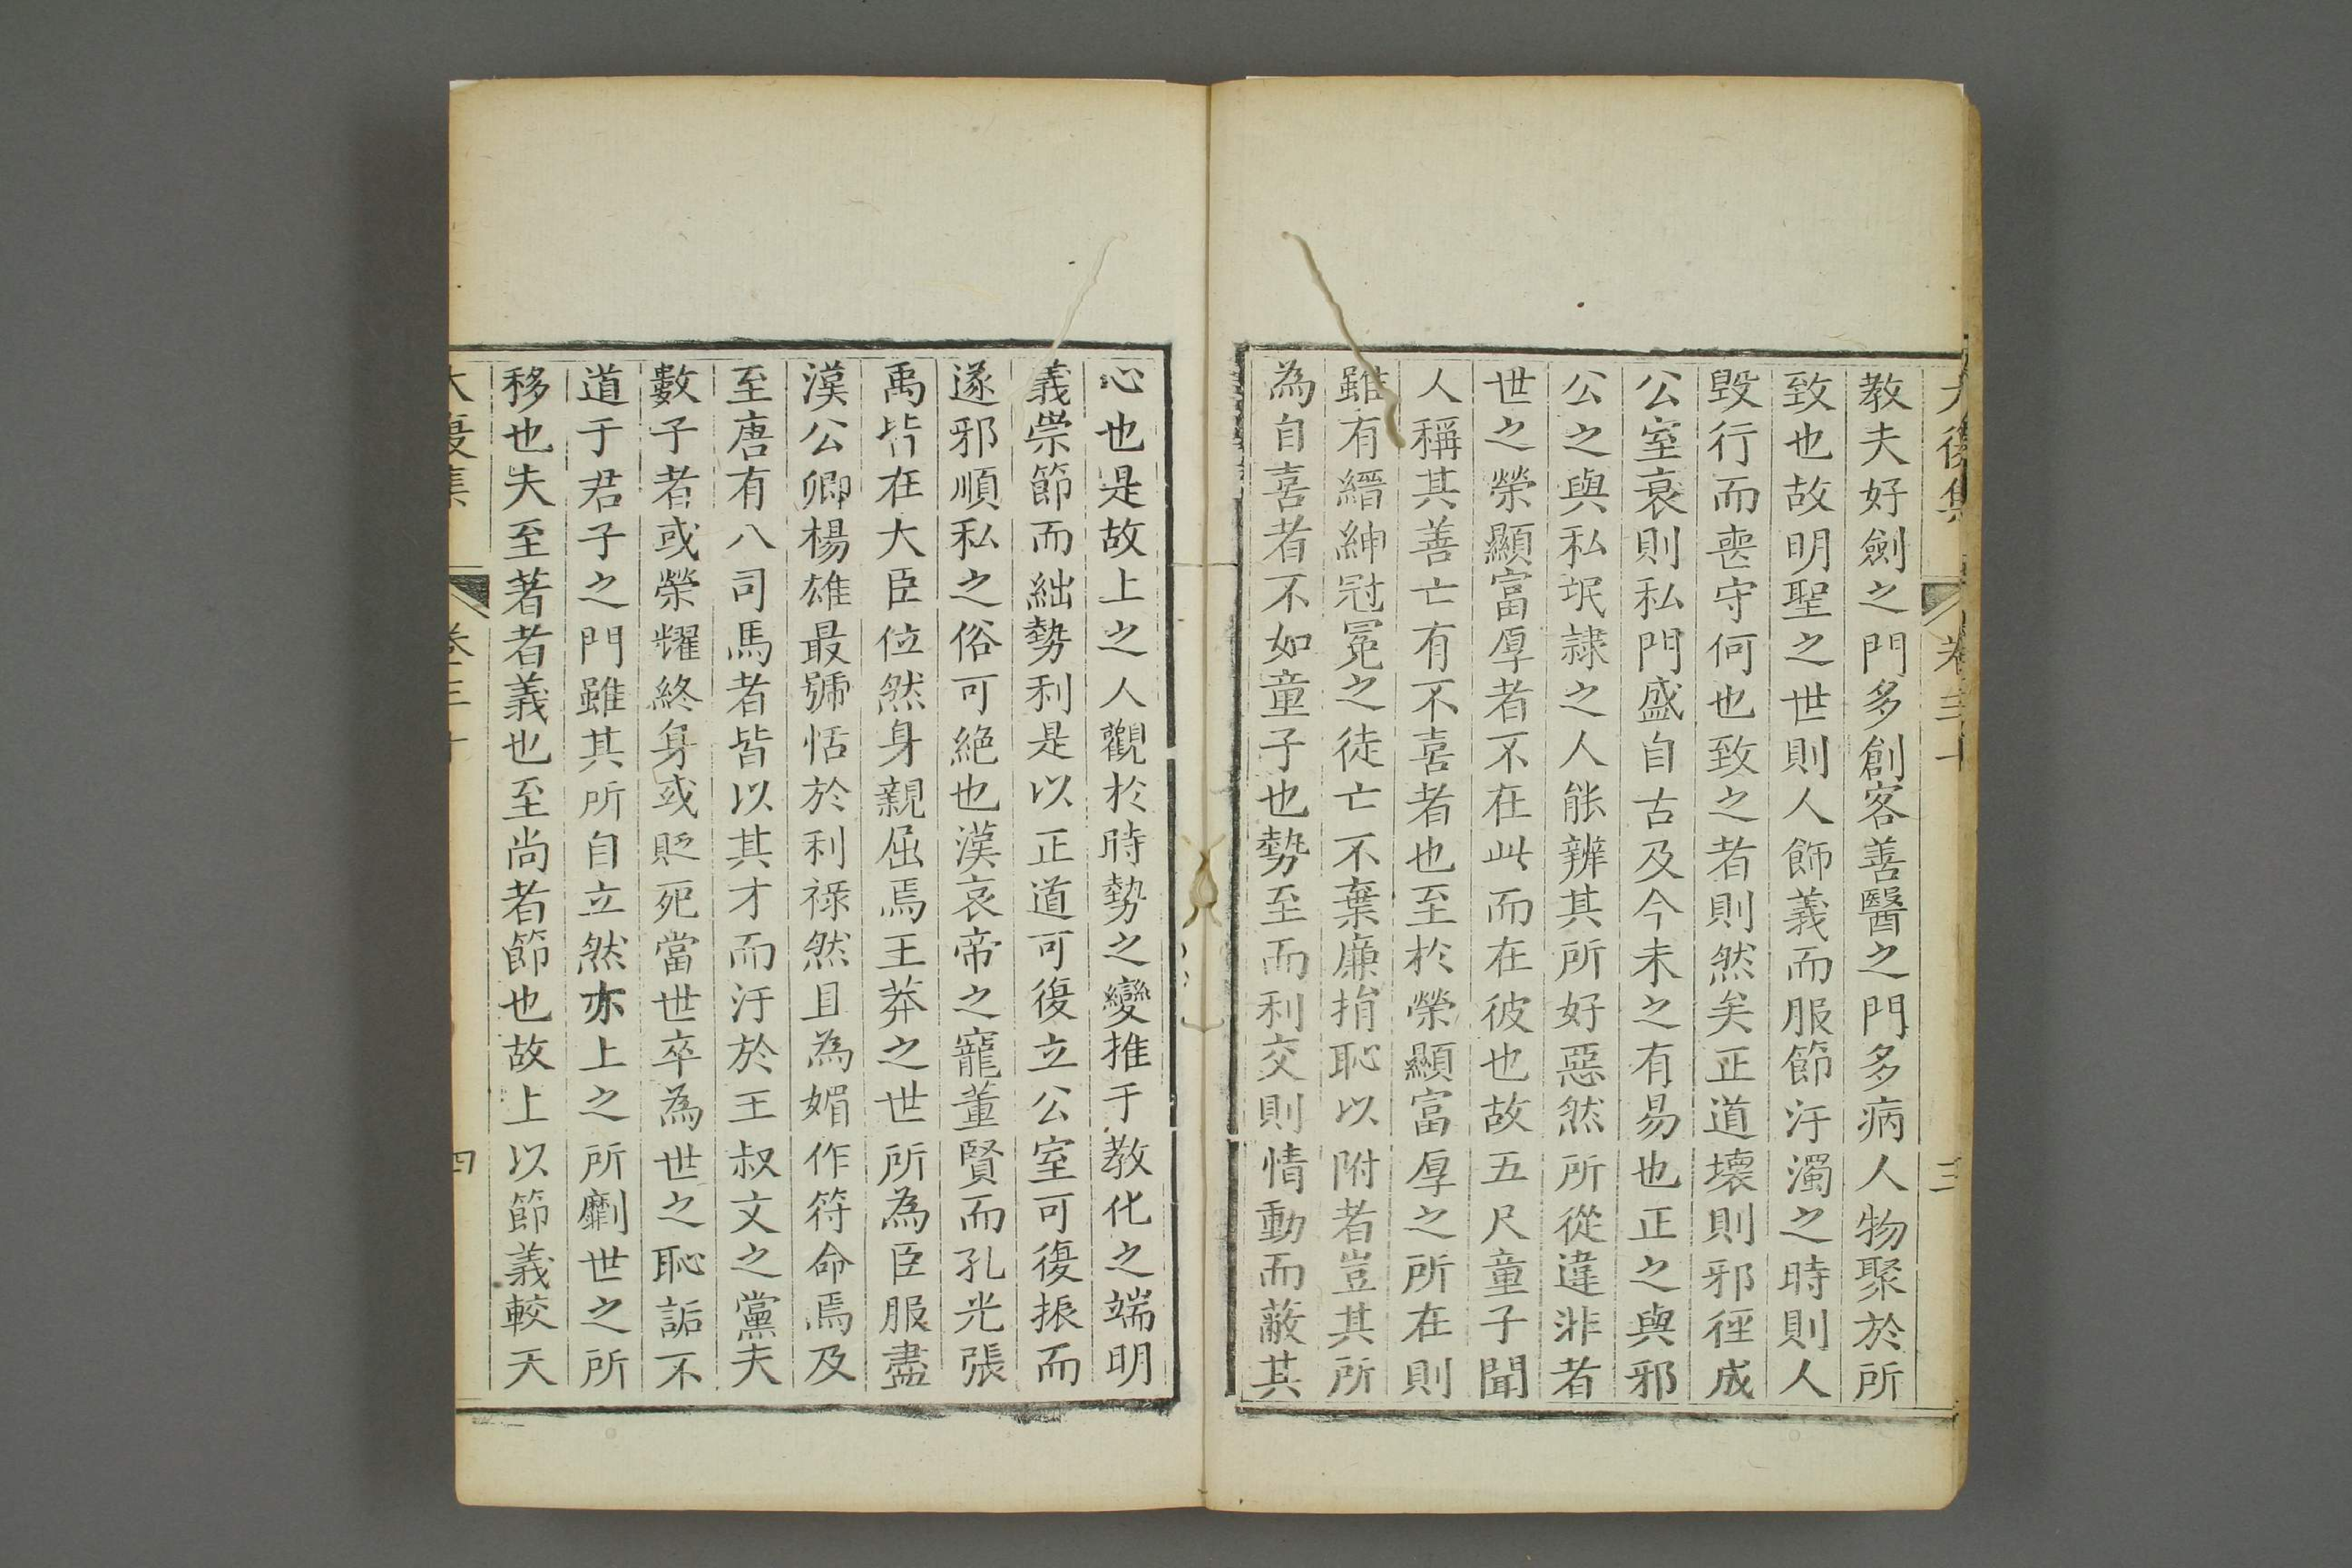 大復集 卷三十 三
教夫好劍之門多創客善醫之門多病人物聚於所
致也故明聖之世則人飾義而服節汙濁之時則人
毀行而喪守何也致之者則然矣正道壞則邪徑成
公室衰則私門盛自古及今未之有易也正之與邪
公之與私氓隷之人能辨其所好惡然所從違非者
世之榮顯富厚者不在此而在彼也故五尺童子聞
人稱其善亡有不喜者也至於榮顯富厚之所在則
雖有縉紳冠冕之徒亡不棄廉捐恥以附者豈其所
為自喜者不如童子也勢至而利交則情動而蔽其
心也是故上之人觀於時勢之變推于教化之端明
義崇節而絀勢利是以正道可復立公室可復振而
遂邪順私之俗可絶也漢哀帝之寵董賢而孔光張
禹皆在大臣位然身親屈焉王莽之世所為臣服盡
漢公卿楊雄最號恬於利祿然且為媚作符命焉及
至唐有八司馬者皆以其才而汙於王叔文之黨夫
數子者或榮耀終身或貶死當世卒為世之恥詬不
道于君子之門雖其所自立然亦上之所劘世之所
移也夫至著者義也至尚者節也故上以節義較天
大復集 卷三十 四